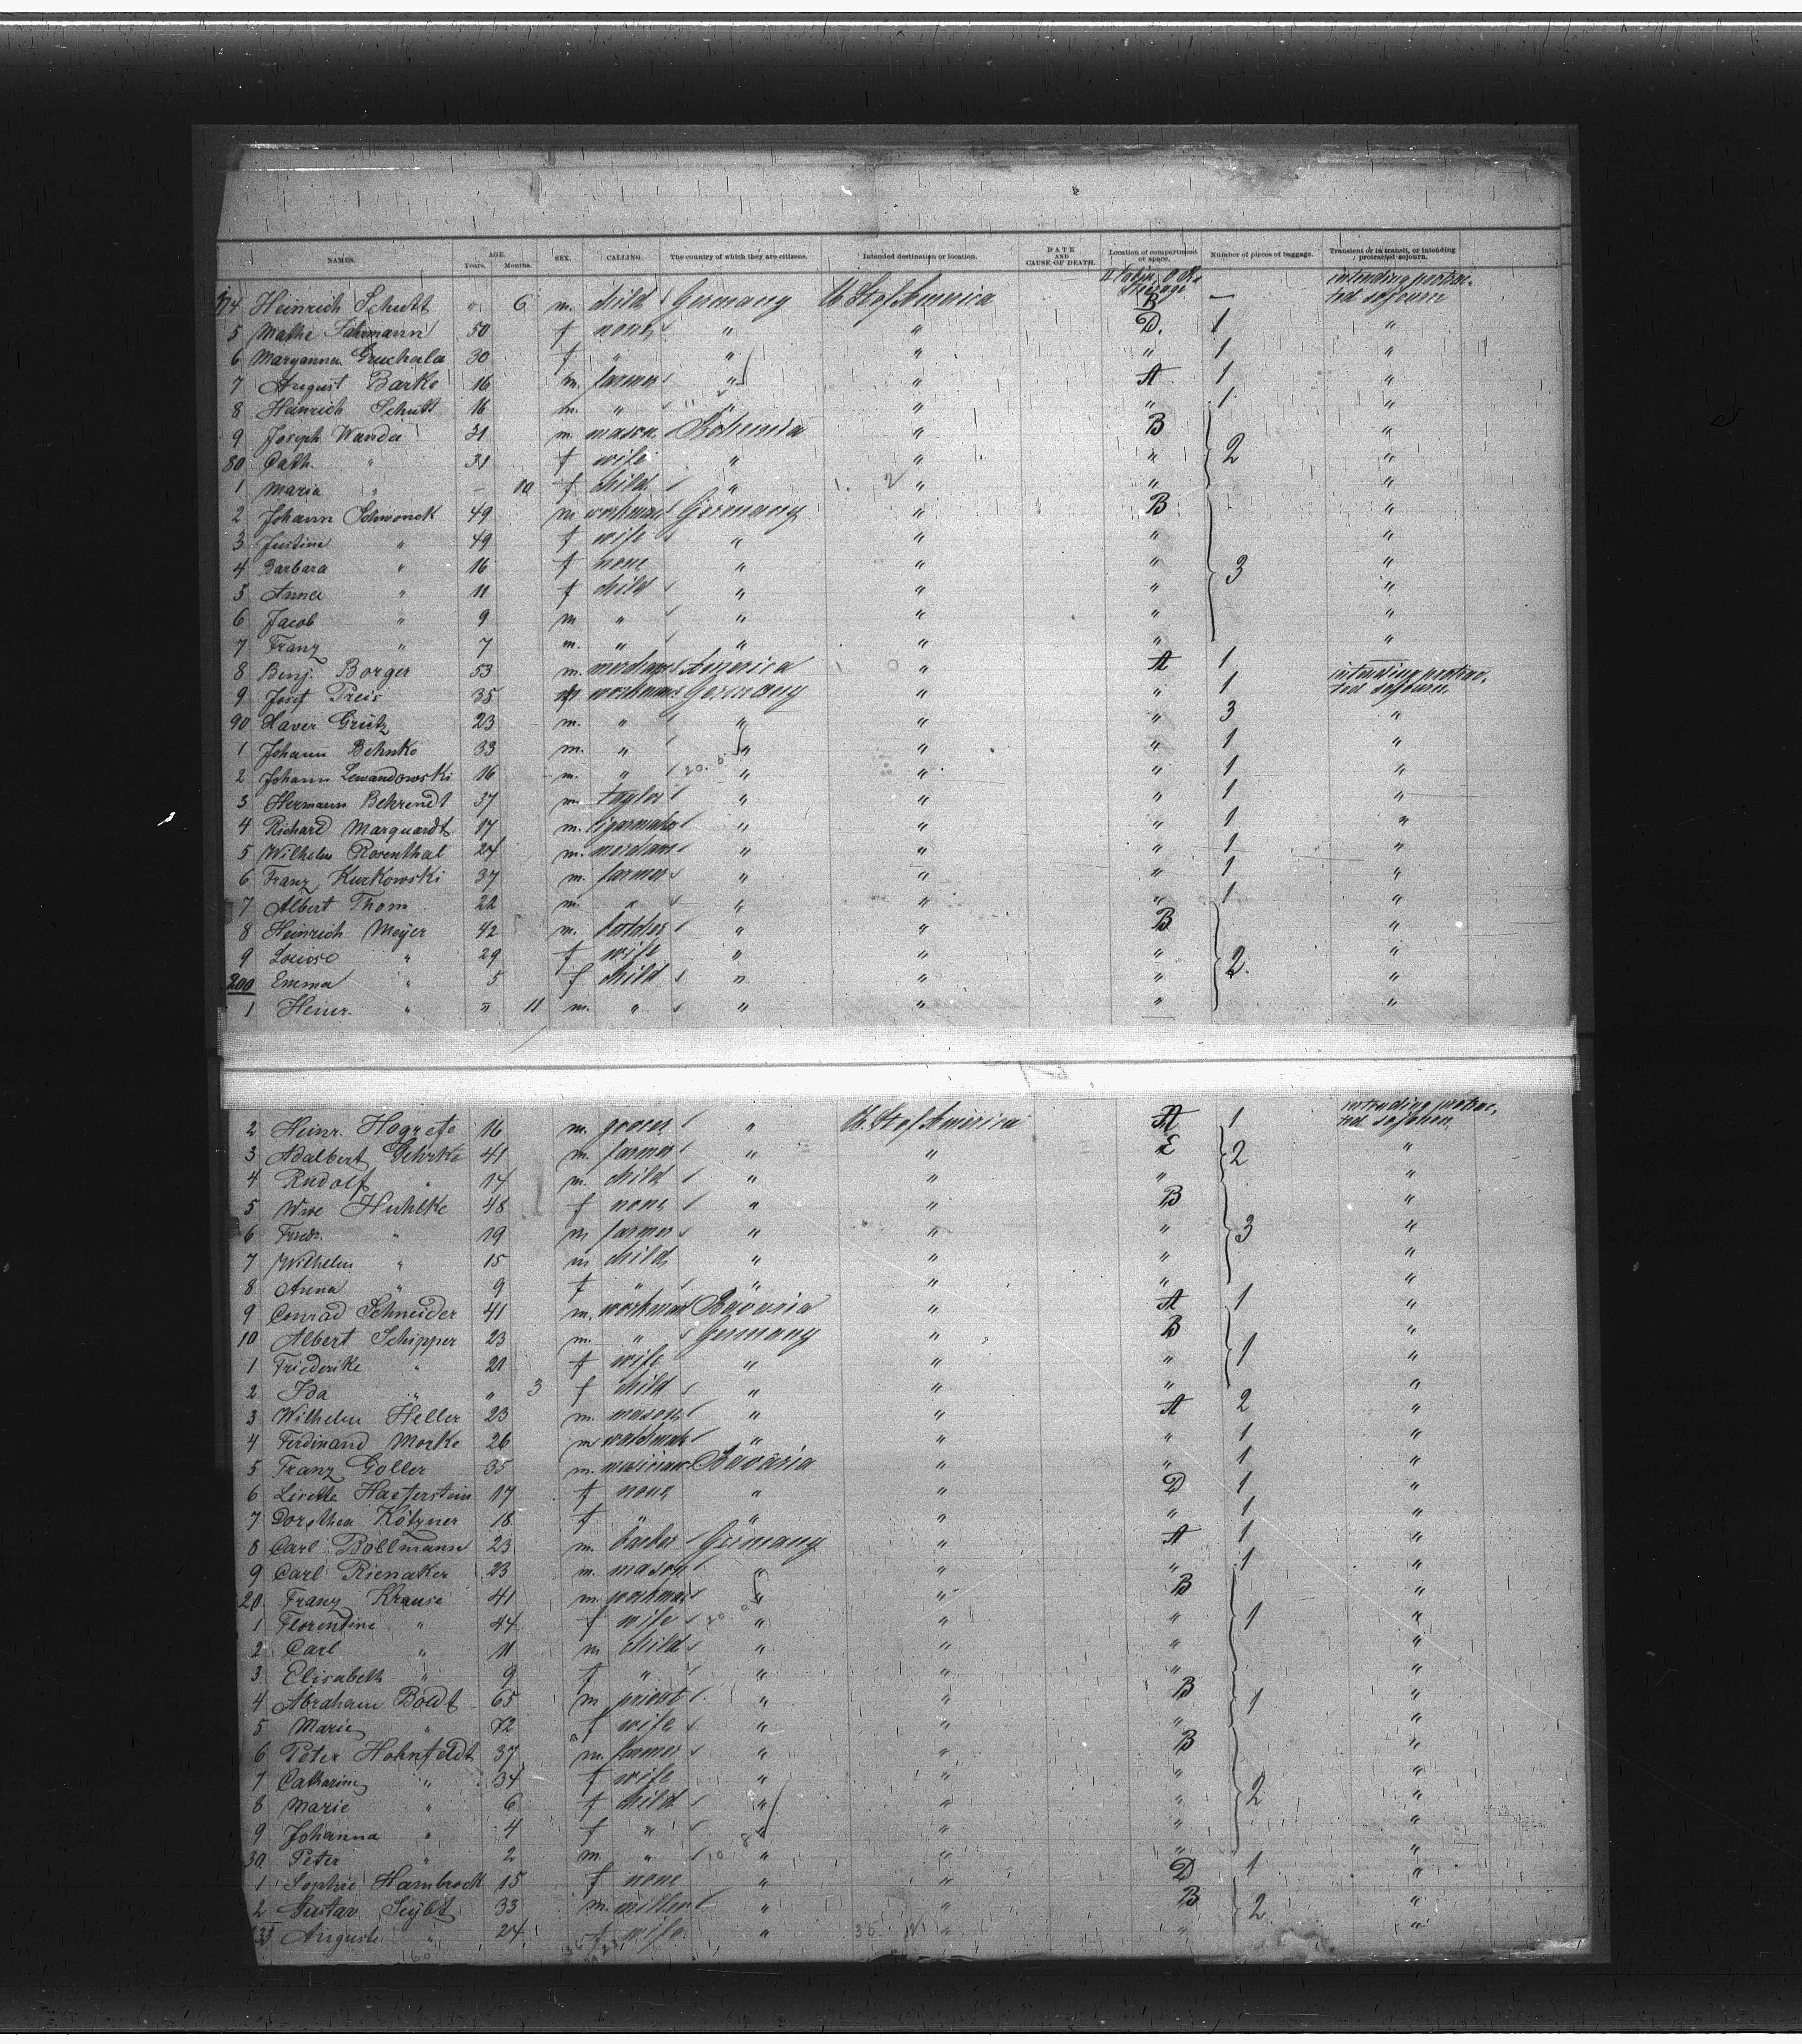 NAMES. AGE. Years. Months. SEX. CALLING. The country of which they are citizens. Intended destination or location. DATE AND CAUSE OF DEATH. Location of compartment or space. Number of pieces of baggage. Transient or in transit, or intending protracted sojourn.
174 Heinrich Schutt " 6 m. child Germany U. St of America Steerage B — intending protrac-ted sojourn
5 Mathe Fahrmann 50 f none " " D. 1 "
6 Maryanna Gruchala 30 f " " " " 1 "
7 August Barke 16 m. farmer " " A 1 "
8 Heinrich Schutt 16 m. " " " " 1 "
9 Joseph Wanda 31 m. mason Bohemia " B 2 "
80 Cath. " 31 f wife " " " "
1 Maria " – 10 f child " " " "
2 Johann Schwonek 49 m workman Germany " B 3 "
3 Justine " 49 f wife " " " "
4 Barbara " 16 f none " " " "
5 Anna " 11 f child " " " "
6 Jacob " 9 m " " " " "
7 Franz " 7 m. " " " " "
8 Benj. Borger 53 m. America " A 1
9 Josef Preis 35 m workman Germany " " 1 intending protrac-ted sojourn
90 Xaver Grütz 23 m. " " " " 3 "
1 Johann Behnke 33 m. " " " " 1 "
2 Johann Lewandowski 16 m. " " " " 1 "
3 Hermann Behrendt 37 m. taylor " " " 1 "
4 Richard Marquardt 17 m. cigarmaker " " " 1 "
5 Wilhelm Rosenthal 24 m. " " " 1 "
6 Franz Kurkowski 37 m. farmer " " " 1 "
7 Albert Thom 22 m. " " " " 1 "
8 Heinrich Meyer 42 m. " " B 2 "
9 Louise " 29 f wife " " " "
200 Emma " 5 f child " " " "
1 Heinr. " " 11 m. " " " " "
2 Heinr. Hogrefe 16 m. grocer " U. St of America A 1 intending protrac-ted sojourn
3 Adalbert Gehrke 41 m. farmer " " E 2 "
4 Rudolf " 14 m. child " " " "
5 Wwe Huhlke 48 f none " " B 3 "
6 Friedr. " 19 m farmer " " " "
7 Wilhelm " 15 m child " " " "
8 Anna " 9 f " " " " "
9 Conrad Schneider 41 m. workman Bavaria " A 1 "
10 Albert Schipper 23 m. " Germany " B 1 "
1 Friederike " 21 f wife " " " "
2 Ida " " 3 f child " " " "
3 Wilhelm Heller 23 m. mason " " A 2 "
4 Ferdinand Morke 26 m " " " 1 "
5 Franz Goller 35 m. musician Bavaria " " 1 "
6 Lisette Haeferstein 17 f none " " D 1 "
7 Dorothea Kötzner 18 f " " " " 1 "
8 Carl Bollmann 23 m. Germany " A 1 "
9 Carl Rienaker 23 m. mason " " " 1 "
20 Franz Krause 41 m. workman " " B 1 "
1 Florentine " 44 f wife " " " "
2 Carl " 11 m child " " " "
3 Elisabeth " 9 f " " " " "
4 Abraham Boldt 65 m " " B 1 "
5 Marie " 72 f wife " " " "
6 Peter Hohnfeldt 37 m. farmer " " B 2 "
7 Catharine " 34 f wife " " " "
8 Marie " 6 f child " " " "
9 Johanna " 4 f " " " " "
30 Peter " 2 m. " " " " "
1 Sophie Hambrock 15 f none " " D 1 "
2 Gustav Seybt 33 m. miller " " B 2 "
33 Auguste " 24 f wife " " " "